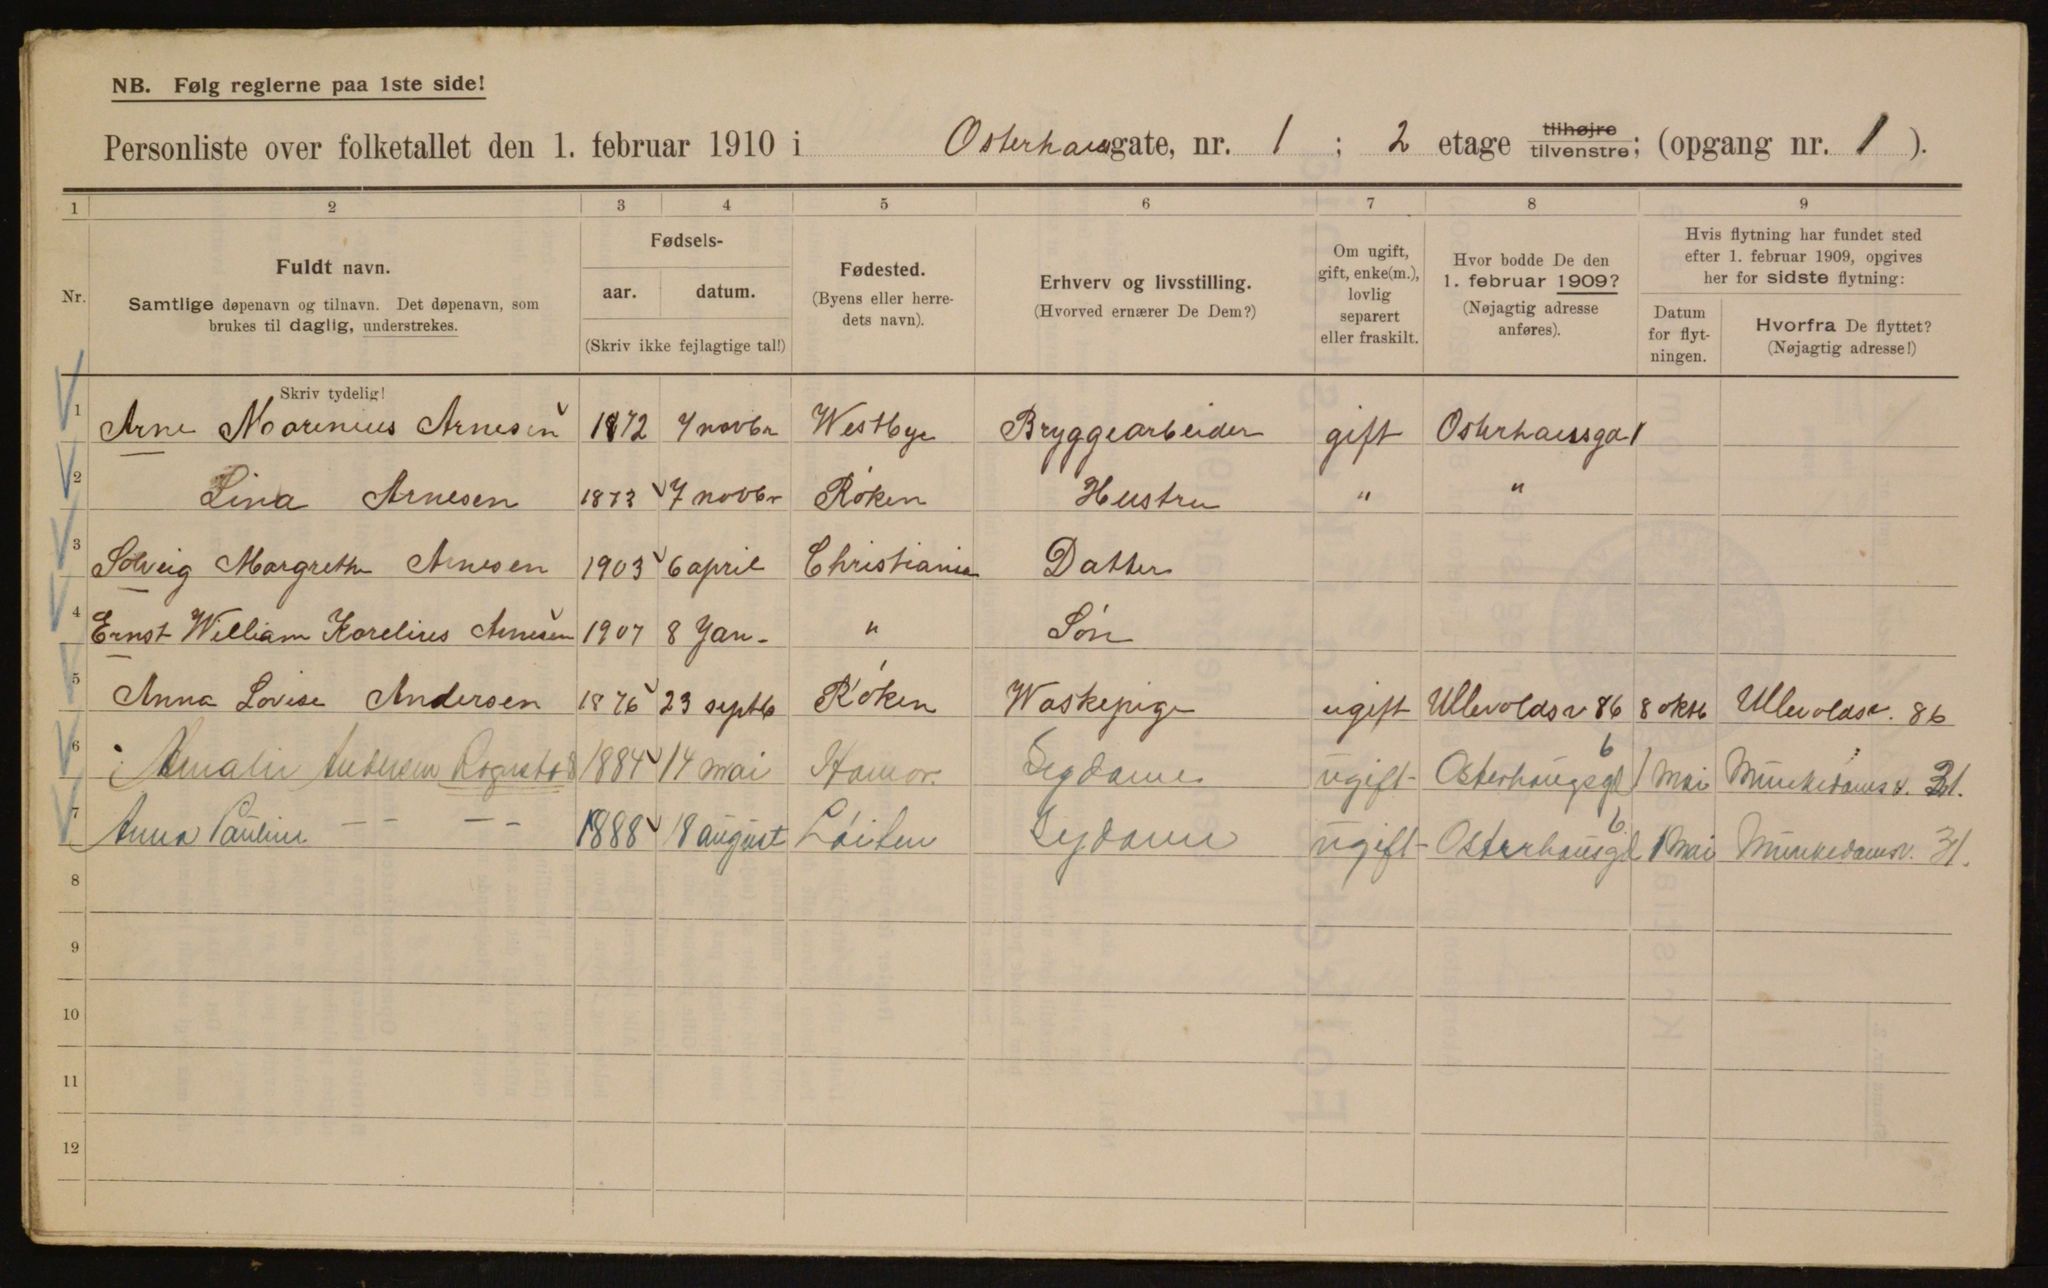 NB. Følg reglerne paa 1ste side!
Personliste over folketallet den 1. februar 1910 i Osterhausgate, nr. 1; 2 etage tilhøjre tilvenstre; (opgang nr. 1).
1 2 3 4 5 6 7 8 9
Nr.
Fuldt navn.
Samtlige døpenavn og tilnavn. Det døpenavn, som
brukes til daglig, understrekes.
Skriv tydelig!
Fødsels-
aar. datum.
(Skriv ikke fejlagtige tal!)
Fødested.
(Byens eller herre-
dets navn).
Erhverv og livsstilling.
(Hvorved ernærer De Dem?)
Om ugift,
gift, enke(m.),
lovlig
separert
eller fraskilt.
Hvor bodde De den
1. februar 1909?
(Nøjagtig adresse
anføres).
Hvis flytning har fundet sted
efter 1. februar 1909, opgives
her for sidste flytning:
Datum
for flyt-
ningen.
Hvorfra De flyttet?
(Nøjagtig adresse!)
1 Arne Marenius Arnesen 1872 7 novbr Westbye Bryggearbeider gift Osterhausga 1
2 Lina Arnesen 1873 7 novbr Røken Hustru " "
3 Solveig Margrethe Arnesen 1903 6 april Christiania Datter
4 Ernst William Karelius Arnesen 1907 8 Jan- " Søn
5 Anna Lovise Andersen 1876 23 septb Røken Waskepige ugift Ullevoldsv 86 8 oktb Ullevoldsv. 86
6 Amalie Andersen 1884 14 mai Hamar. Sydame ugift Osterhausgd 6 1 Mai Munkedamsv. 31.
7 Anna Pauline — — — — 1888 18 august Løiten Sydame ugift Osterhausgd 6 1 Mai Munkedamsv. 31.
8
9
10
11
12